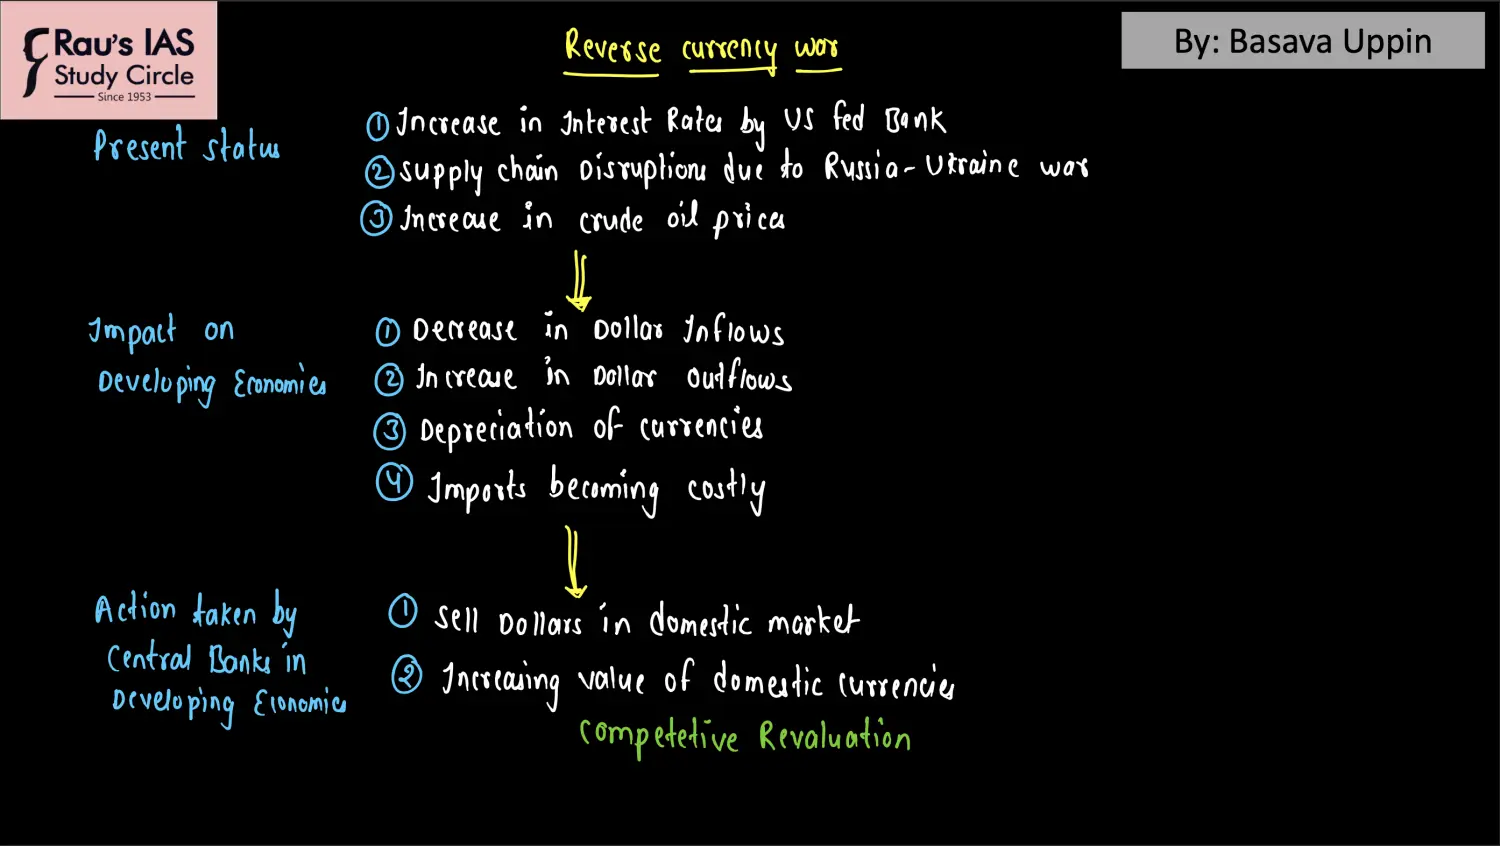 Rau's IAS
Study Circle
Since 1953
Reverse currency war
By: Basava Uppin
Present status
① Increase in Interest Rates by US Fed Bank
② Supply chain Disruptions due to Russia-Ukraine war
③ Increase in crude oil prices
Impact on
Developing Economies
① Decrease in Dollar Inflows
② Increase in Dollar outflows
③ Depreciation of currencies
④ Imports becoming costly
Action taken by
Central Banks in
Developing Economies
① Sell Dollars in domestic market
② Increasing value of domestic currencies
Competetive Revaluation